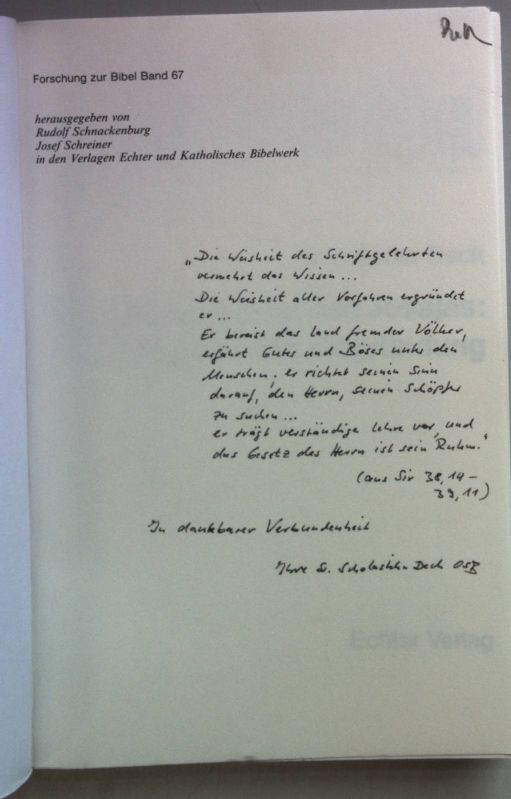 Forschung zur Bibel Band 67
herausgegeben von
Rudolf Schnackenburg
Josef Schreiner
in den Verlagen Echter und Katholisches Bibelwerk
„Die Weisheit des Schriftgelehrten
vermehrt das Wissen ...
Die Weisheit aller Vorfahren ergründet
er ...
Er bereist das Land fremder Völker,
erfährt Gutes und Böses unter den
Menschen; er richtet seinen Sinn
darauf, den Herrn, seinen Schöpfer
zu suchen ...
er trägt verständige Lehre vor, und
das Gesetz des Herrn ist sein Ruhm."
(aus Sir 38,24 –
39,11)
In dankbarer Verbundenheit
Ihre Sr. Scholastika Deck OSB
Echter Verlag